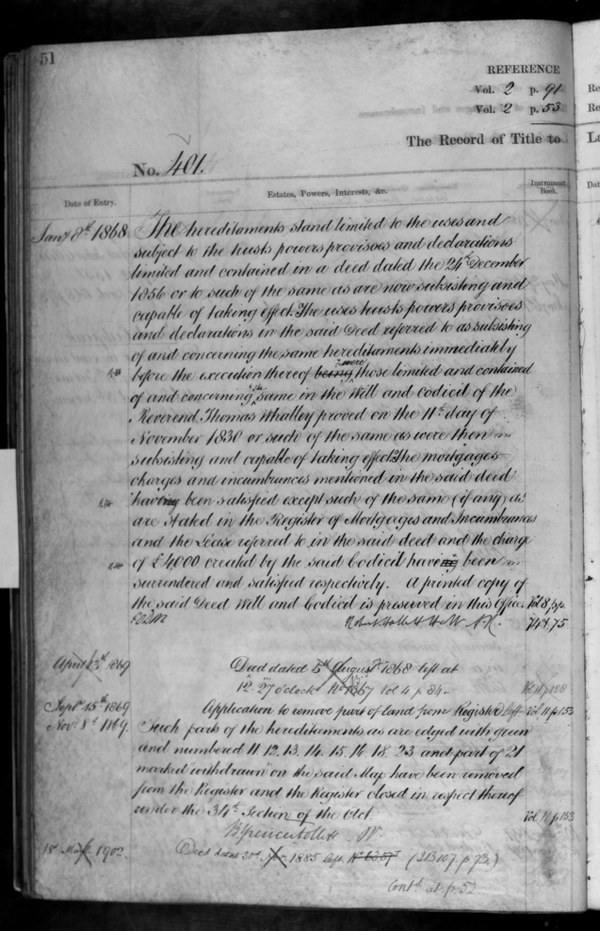 51
REFERENCE
Vol. 2 p. 91
Vol. 2 p. 53
The Record of Title to
No. 401.
Date of Entry.
Estates, Powers, Interests, &c.
Instrument Book.
Jany 8th 1868
The hereditaments stand limited to the uses and
subject to the trusts powers provisoes and declarations
limited and contained in a deed dated the 24th December
1856 or to such of the same as are now subsisting and
capable of taking effect. The uses trusts powers provisoes
and declarations in the said Deed referred to as subsisting
of and concerning the same hereditaments immediately
were
before the execution thereof being those limited and contained
the
of and concerning same in the Will and Codicil of the
Reverend Thomas Whalley proved on the 11th day of
November 1830 or such of the same as were then
subsisting and capable of taking effect. The mortgages
charges and incumbrances mentioned in the said deed
having been satisfied except such of the same (if any) as
are stated in the Register of Mortgages and Incumbrances
and the Lease referred to in the said deed and the charge
of £4,000 created by the said Codicil having been
surrendered and satisfied respectively. A printed copy of
the said Deed Will and Codicil is preserved in this Office.
Vol 8, pp.
74 & 75
April 3d 1869
Deed dated 5th August 1868 left at
12. 27 o'clock No 1367 Vol 4 p 84
Septr 15th 1869
Application to remove part of land from Register left
Vol 11 p 153
Novr 8th 1869.
Such parts of the hereditaments as are edged with green
and numbered 11. 12. 13. 14. 15. 16. 18. 23 and part of 21
marked withdrawn on the said Map have been removed
from the Register and the Register closed in respect thereof
under the 34th Section of the Act.
Vol. 11 p 153
1902
1885
(213107. p 73)
Contd at p. 52